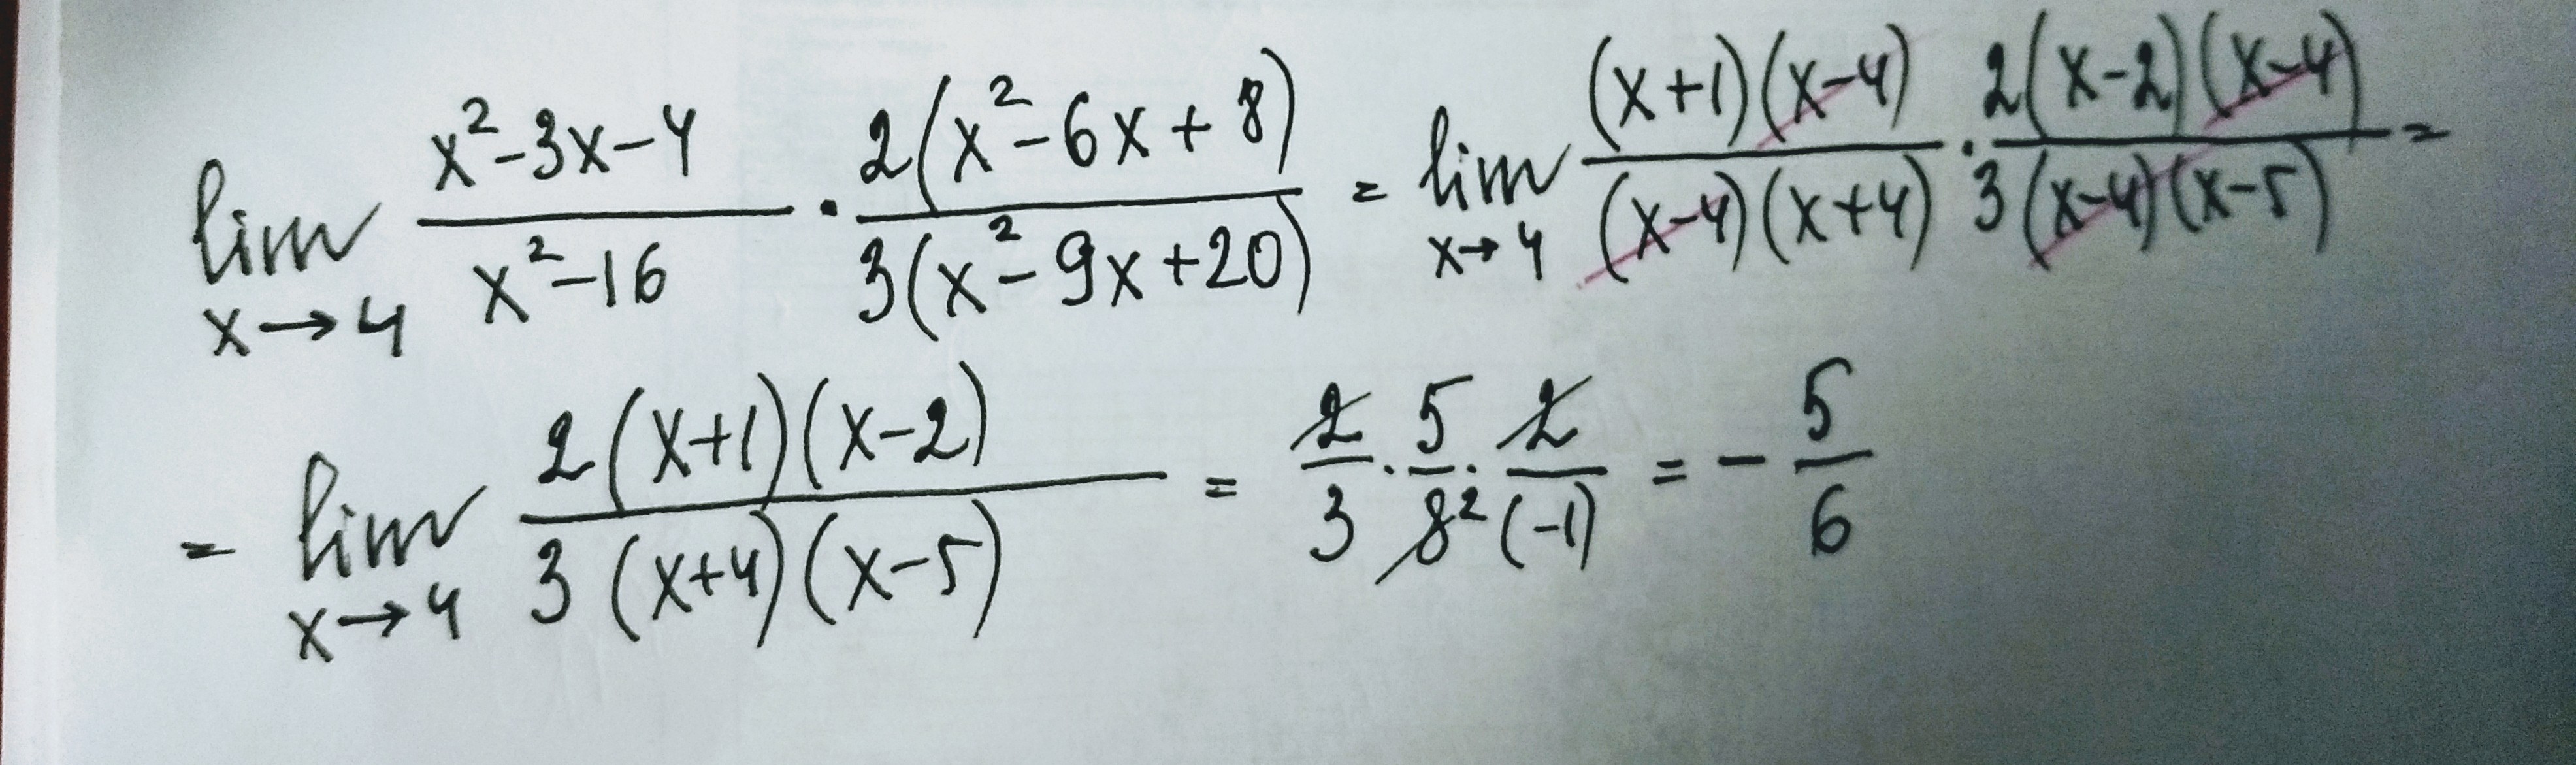 lim x→4 (x²-3x-4)/(x²-16) · 2(x²-6x+8)/3(x²-9x+20) = lim x→4 (x+1)(x-4)/(x-4)(x+4) · 2(x-2)(x-4)/3(x-4)(x-5) =
= lim x→4 2(x+1)(x-2)/3(x+4)(x-5) = 2/3 · 5/8² · 2/(-1) = - 5/6